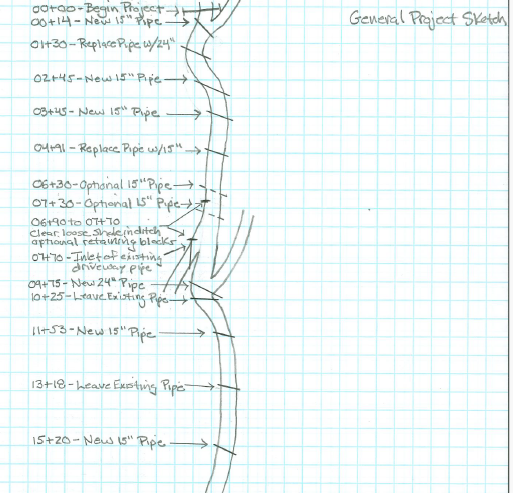 General Project Sketch
00+00-Begin Project
00+14-New 15" Pipe
01+30-Replace Pipe w/24"
02+45-New 15" Pipe
03+45-New 15" Pipe
04+91-Replace Pipe w/15"
06+30-Optional 15" Pipe
07+30-Optional 15" Pipe
06+90 to 07+70
Clear loose Shale in ditch
optional retaining blocks
07+70-Inlet of existing
driveway pipe
09+75-New 24" Pipe
10+25-Leave Existing Pipe
11+53-New 15" Pipe
13+18-Leave Existing Pipe
15+20-New 15" Pipe